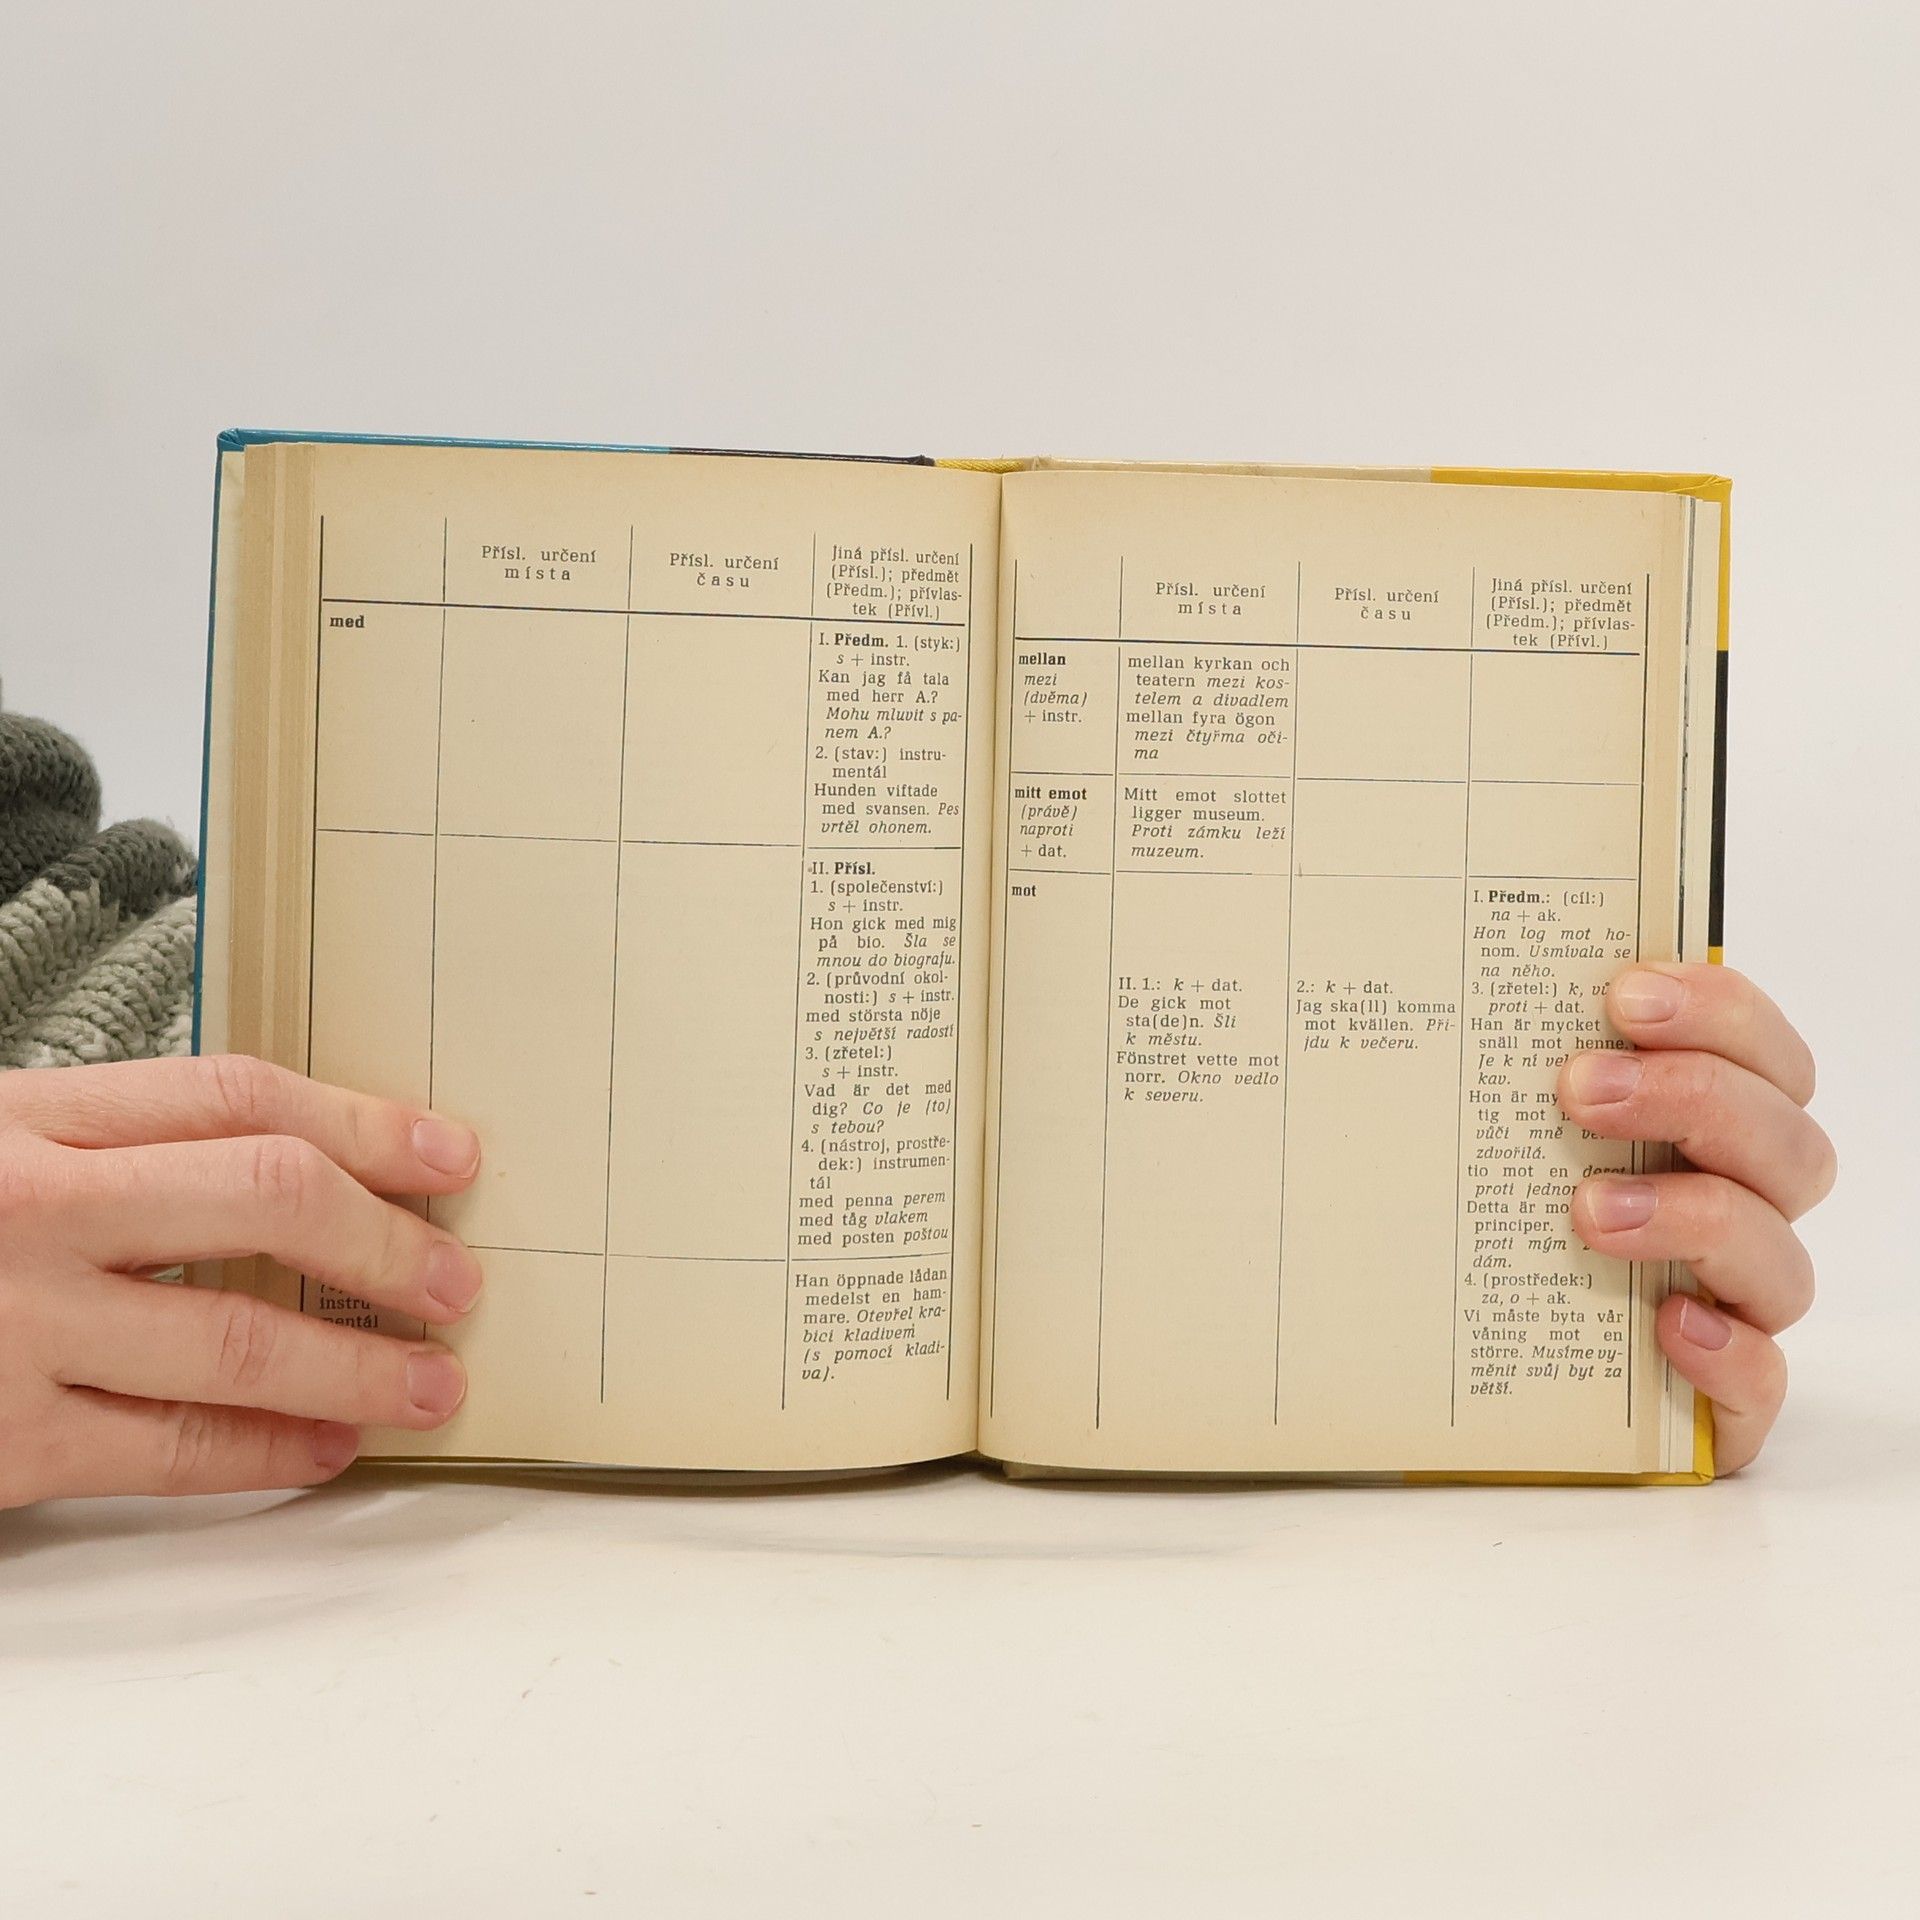 Přísl. určení
místa
Přísl. určení
času
Jiná přísl. určení
(Přísl.); předmět
(Předm.); přívlas-
tek (Přívl.)
med
I. Předm. 1. (styk:)
s + instr.
Kan jag få tala
med herr A.?
Mohu mluvit s pa-
nem A.?
2. (stav:) instru-
mentál
Hunden viftade
med svansen. Pes
vrtěl ohonem.
II. Přísl.
1. (společenství:)
s + instr.
Hon gick med mig
på bio. Šla se
mnou do biografu.
2. (průvodní okol-
nosti:) s + instr.
med största nöje
s největší radostí
3. (zřetel:)
s + instr.
Vad är det med
dig? Co je (to)
s tebou?
4. (nástroj, prostře-
dek:) instrumen-
tál
med penna perem
med tåg vlakem
med posten poštou
instru
mentál
Han öppnade lådan
medelst en ham-
mare. Otevřel kra-
bici kladivem
(s pomocí kladi-
va).
Přísl. určení
místa
Přísl. určení
času
Jiná přísl. určení
(Přísl.); předmět
(Předm.); přívlas-
tek (Přívl.)
mellan
mezi
(dvěma)
+ instr.
mellan kyrkan och
teatern mezi kos-
telem a divadlem
mellan fyra ögon
mezi čtyřma oči-
ma
mitt emot
(právě)
naproti
+ dat.
Mitt emot slottet
ligger museum.
Proti zámku leží
muzeum.
mot
II. 1.: k + dat.
De gick mot
sta(de)n. Šli
k městu.
Fönstret vette mot
norr. Okno vedlo
k severu.
2.: k + dat.
Jag ska(ll) komma
mot kvällen. Při-
jdu k večeru.
I. Předm.: (cíl:)
na + ak.
Hon log mot ho-
nom. Usmívala se
na něho.
3. (zřetel:) k,
proti + dat.
Han är mycket
snäll mot henne.
Je k ní
kav.
Hon är
tig mot
vůči mně
zdvořilá.
tio mot en
proti
Detta är
principer.
proti mým
dám.
4. (prostředek:)
za, o + ak.
Vi måste byta vår
våning mot en
större. Musíme vy-
měnit svůj byt za
větší.